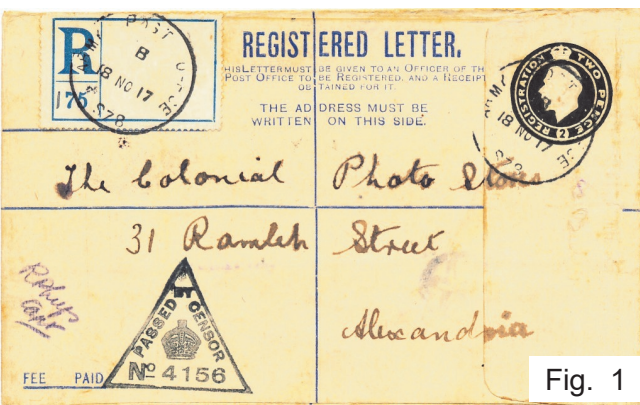 R
175
ARMY POST OFFICE
B
18 NO 17
SZ8
REGISTERED LETTER.
THIS LETTER MUST BE GIVEN TO AN OFFICER OF THE
POST OFFICE TO BE REGISTERED, AND A RECEIPT
OBTAINED FOR IT.
THE ADDRESS MUST BE
WRITTEN ON THIS SIDE.
REGISTRATION TWO PENCE
2
ARMY POST OFFICE
B
18 NO 17
SZ8
The Colonial Photo Stores
31 Ramleh Street
Alexandria
Capt
PASSED BY CENSOR
No 4156
FEE PAID
Fig. 1